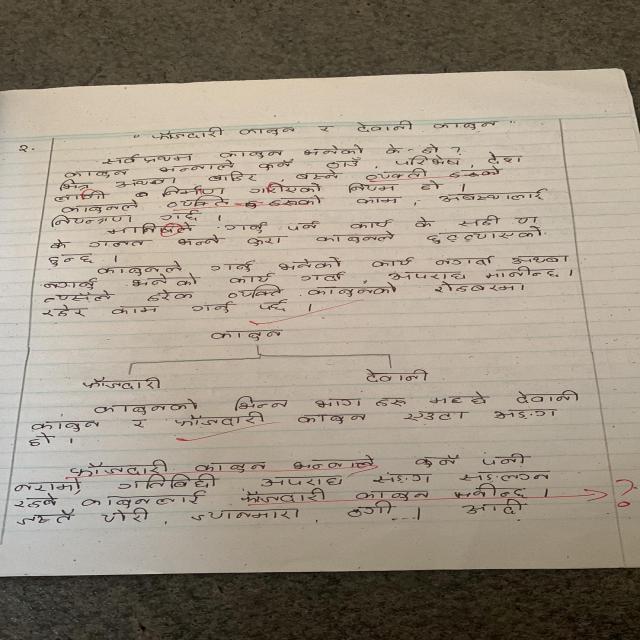 २. " फौजदारी कानुन र देवानी कानुन "
सर्वप्रथम कानुन भनेको के हो ?
कानुन भन्नाले कुनै ठाउँ, परिवेष, देश
भित्र अथवा बाहिर बस्ने व्यक्ती हरुको
लागी निर्माण गरिएको नियम हो ।
कानुनले व्यक्ति हरुको काम, अवस्थालाई
नियन्त्रण गर्छ ।
मानिसले गर्नु पर्ने कार्य के सही या
के गलत भन्ने कुरा कानुनले छुट्याएको
हुन्छ ।
कानुनले गर्नु भनेको कार्य नगर्नु अथवा
नगर्नु भनेको कार्य गर्नु अपराध मानीन्छ ।
त्यसैले हरेक व्यक्ति कानुनको रोहबरमा
रहेर काम गर्नु पर्छ ।
कानुन
फौजदारी देवानी
कानुनको भिन्न भाग हरु मध्ये देवानी
कानुन र फौजदारी कानुन एउटा अङ्ग
हो ।
फौजदारी कानुन भन्नाले कुनै पनी
नराम्रो गतिविधी अपराध सँङ्ग संङ्लग्न
रहने कानुनलाई फौजदारी कानुन भनीन्छ । ?
जस्तै चोरी, ज्यानमारा, ठगी ... । आदी